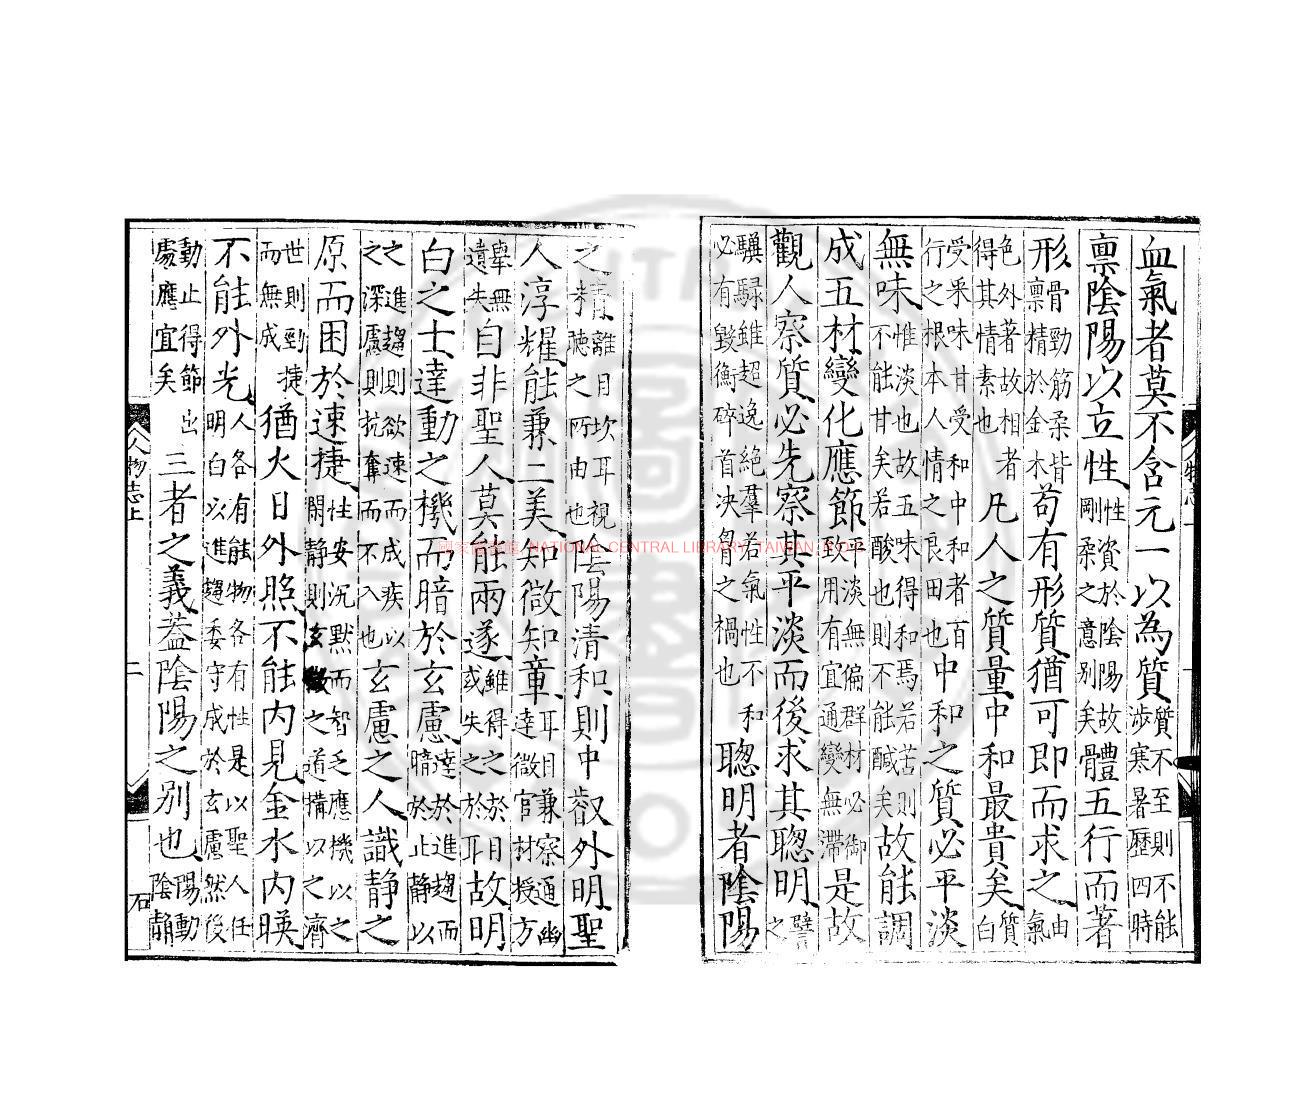 血氣者莫不含元一以為質質不至則不能涉寒暑歷四時
禀陰陽以立性性資於陰陽故剛柔之意別矣體五行而著
形骨勁筋柔皆禀精於金木苟有形質猶可即而求之由氣
色外著故相者得其情素也凡人之質量中和最貴矣質白
受采味甘受和中和者百行之根本人情之良田也中和之質必平淡
無味惟淡也故五味得和焉若苦則不能甘矣若酸也則不能鹹矣故能調
成五材變化應節平淡無偏群材必御致用有宜通變無滯是故
觀人察質必先察其平淡而後求其聰明譬之
驥騄雖超逸絕羣若氣性不和必有毀衡碎首決胷之禍也聰明者陰陽
之精離目坎耳視聽之所由也陰陽清和則中叡外明聖
人淳耀能兼二美知微知章耳目兼察通幽達微官材授方
舉無遺失自非聖人莫能兩遂雖得之於目或失之於耳故明
白之士達動之機而暗於玄慮達於進趨而暗於止靜以
之進趨則欲速而成疾以之深慮則抗奪而不入也玄慮之人識靜之
原而困於速捷性安沉默而智乏應機以之閑靜則玄微之道搆以之濟
世則勁捷而無成猶火日外照不能內見金水內暎
不能外光人各有能物各有性是以聖人任明白以進趨委守成於玄慮然後
動止得節出處應宜矣三者之義蓋陰陽之別也陽動陰靜
人物志上 二 石
NATIONAL CENTRAL LIBRARY, TAIWAN